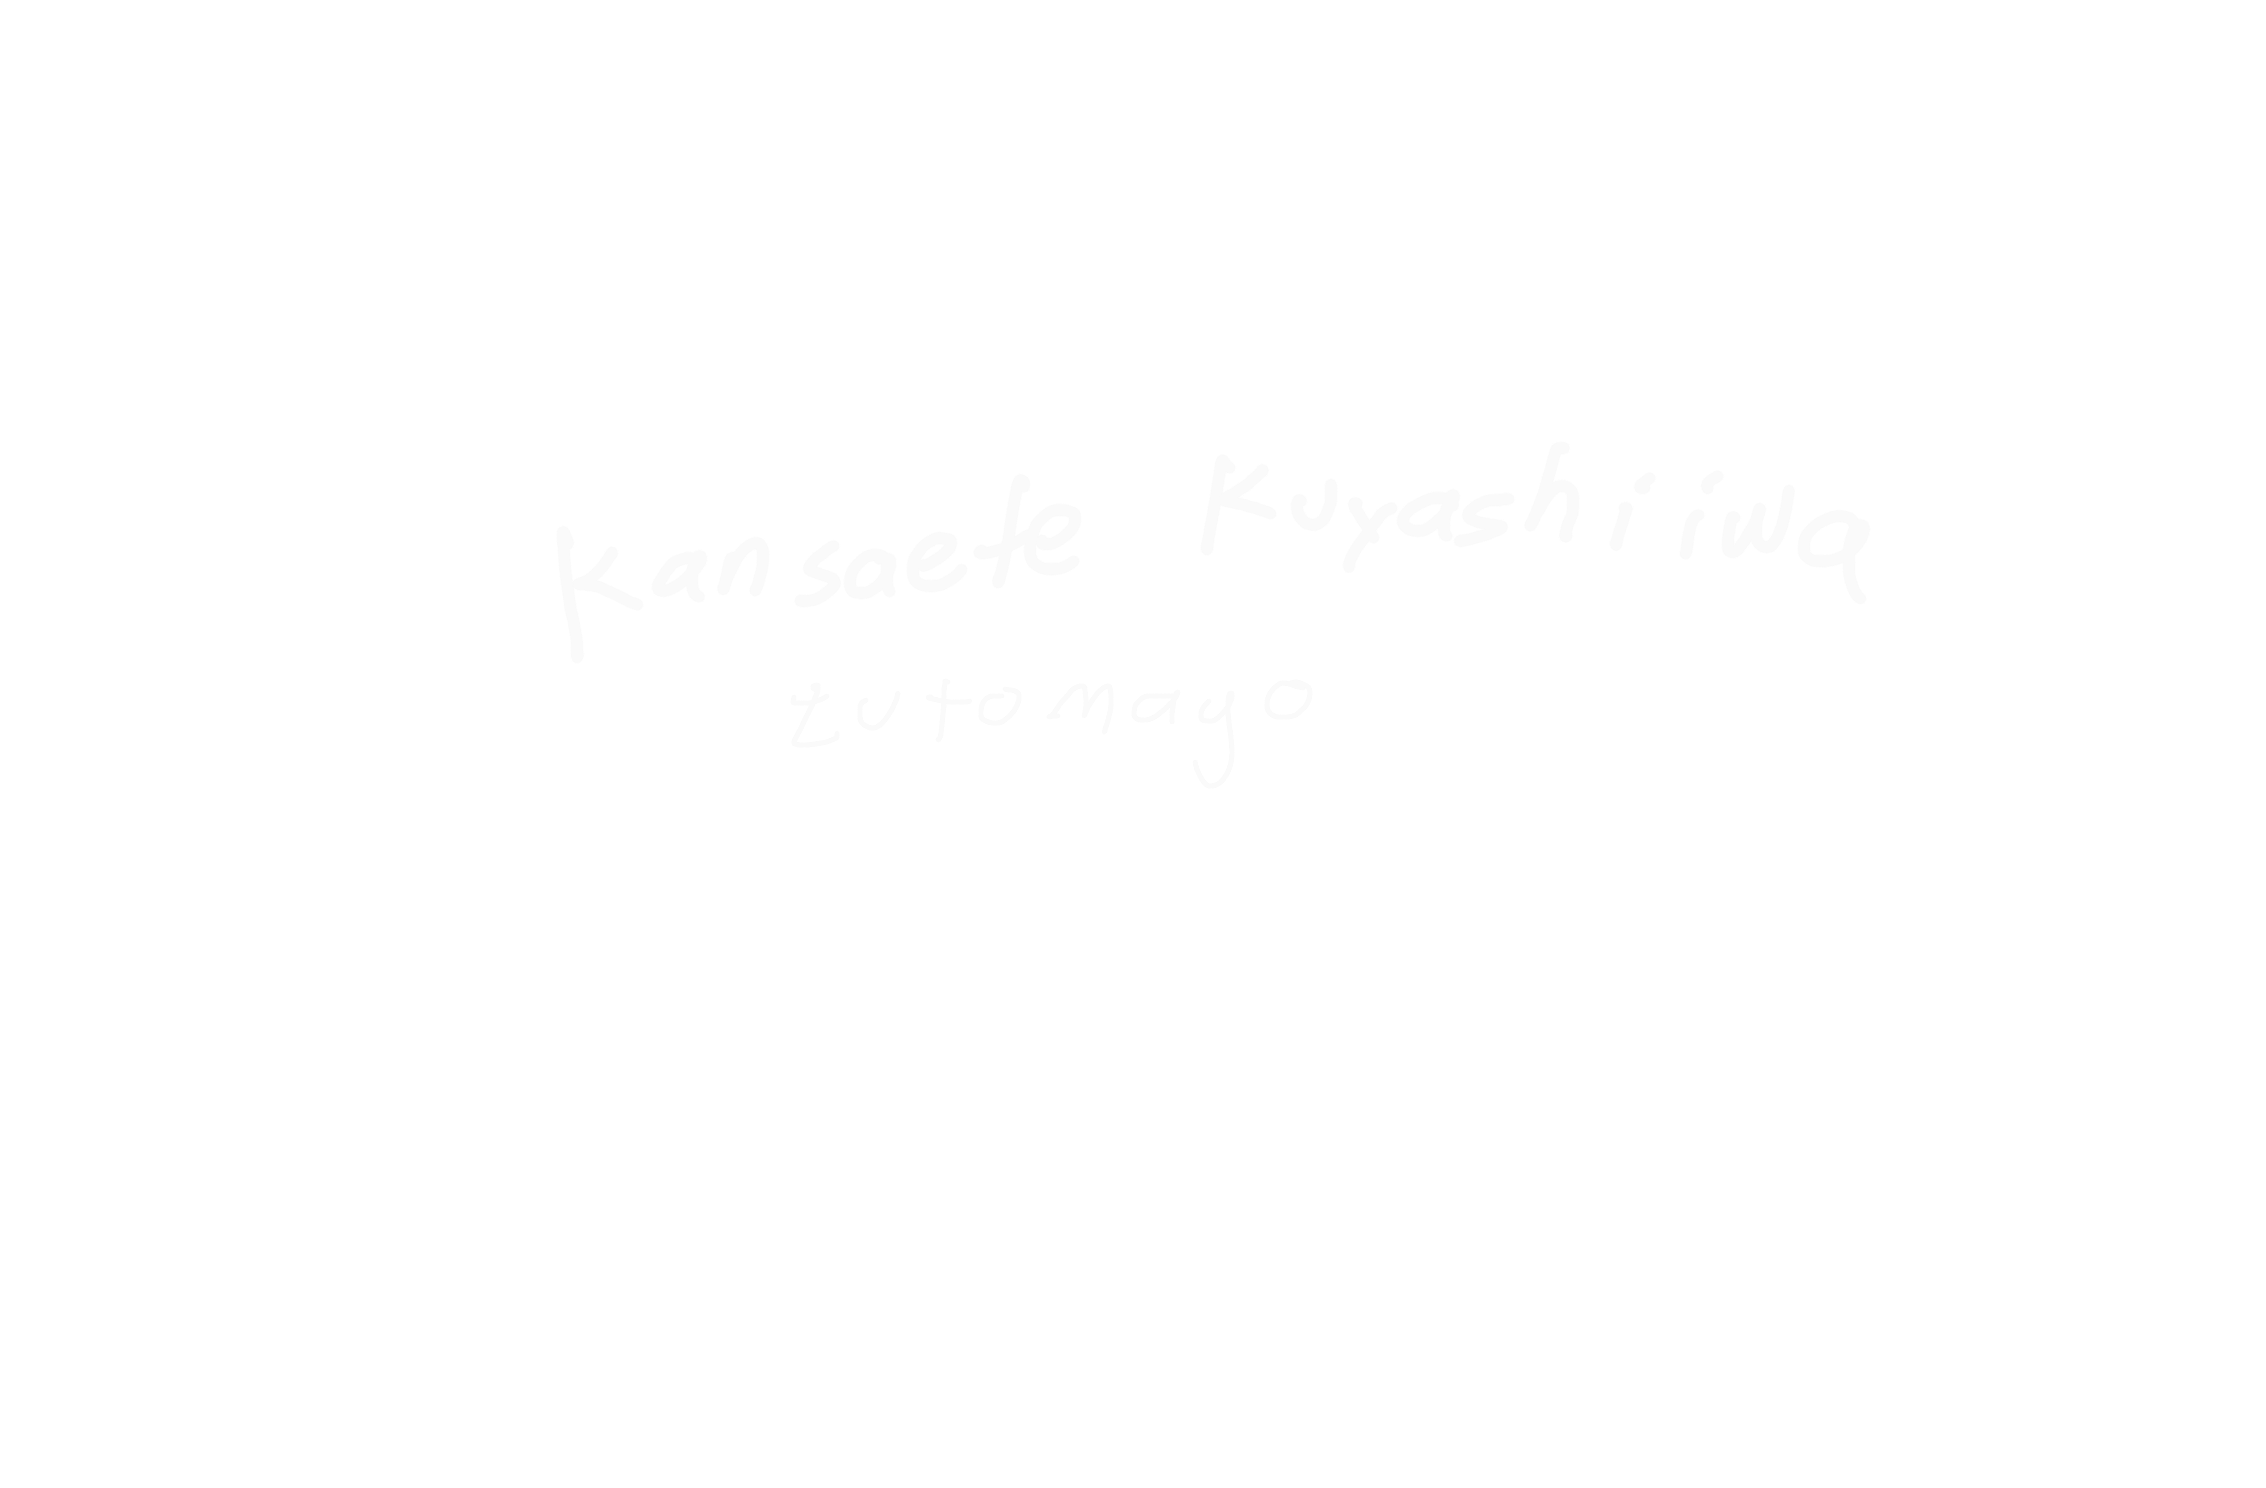 Kansaete Kuyashiiwa
zutomayo